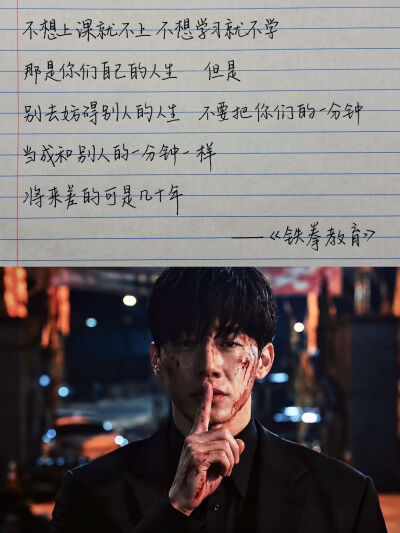 不想上课就不上 不想学习就不学
那是你们自己的人生 但是
别去妨碍别人的人生 不要把你们的一分钟
当成和别人的一分钟一样
将来差的可是几十年
——《铁拳教育》